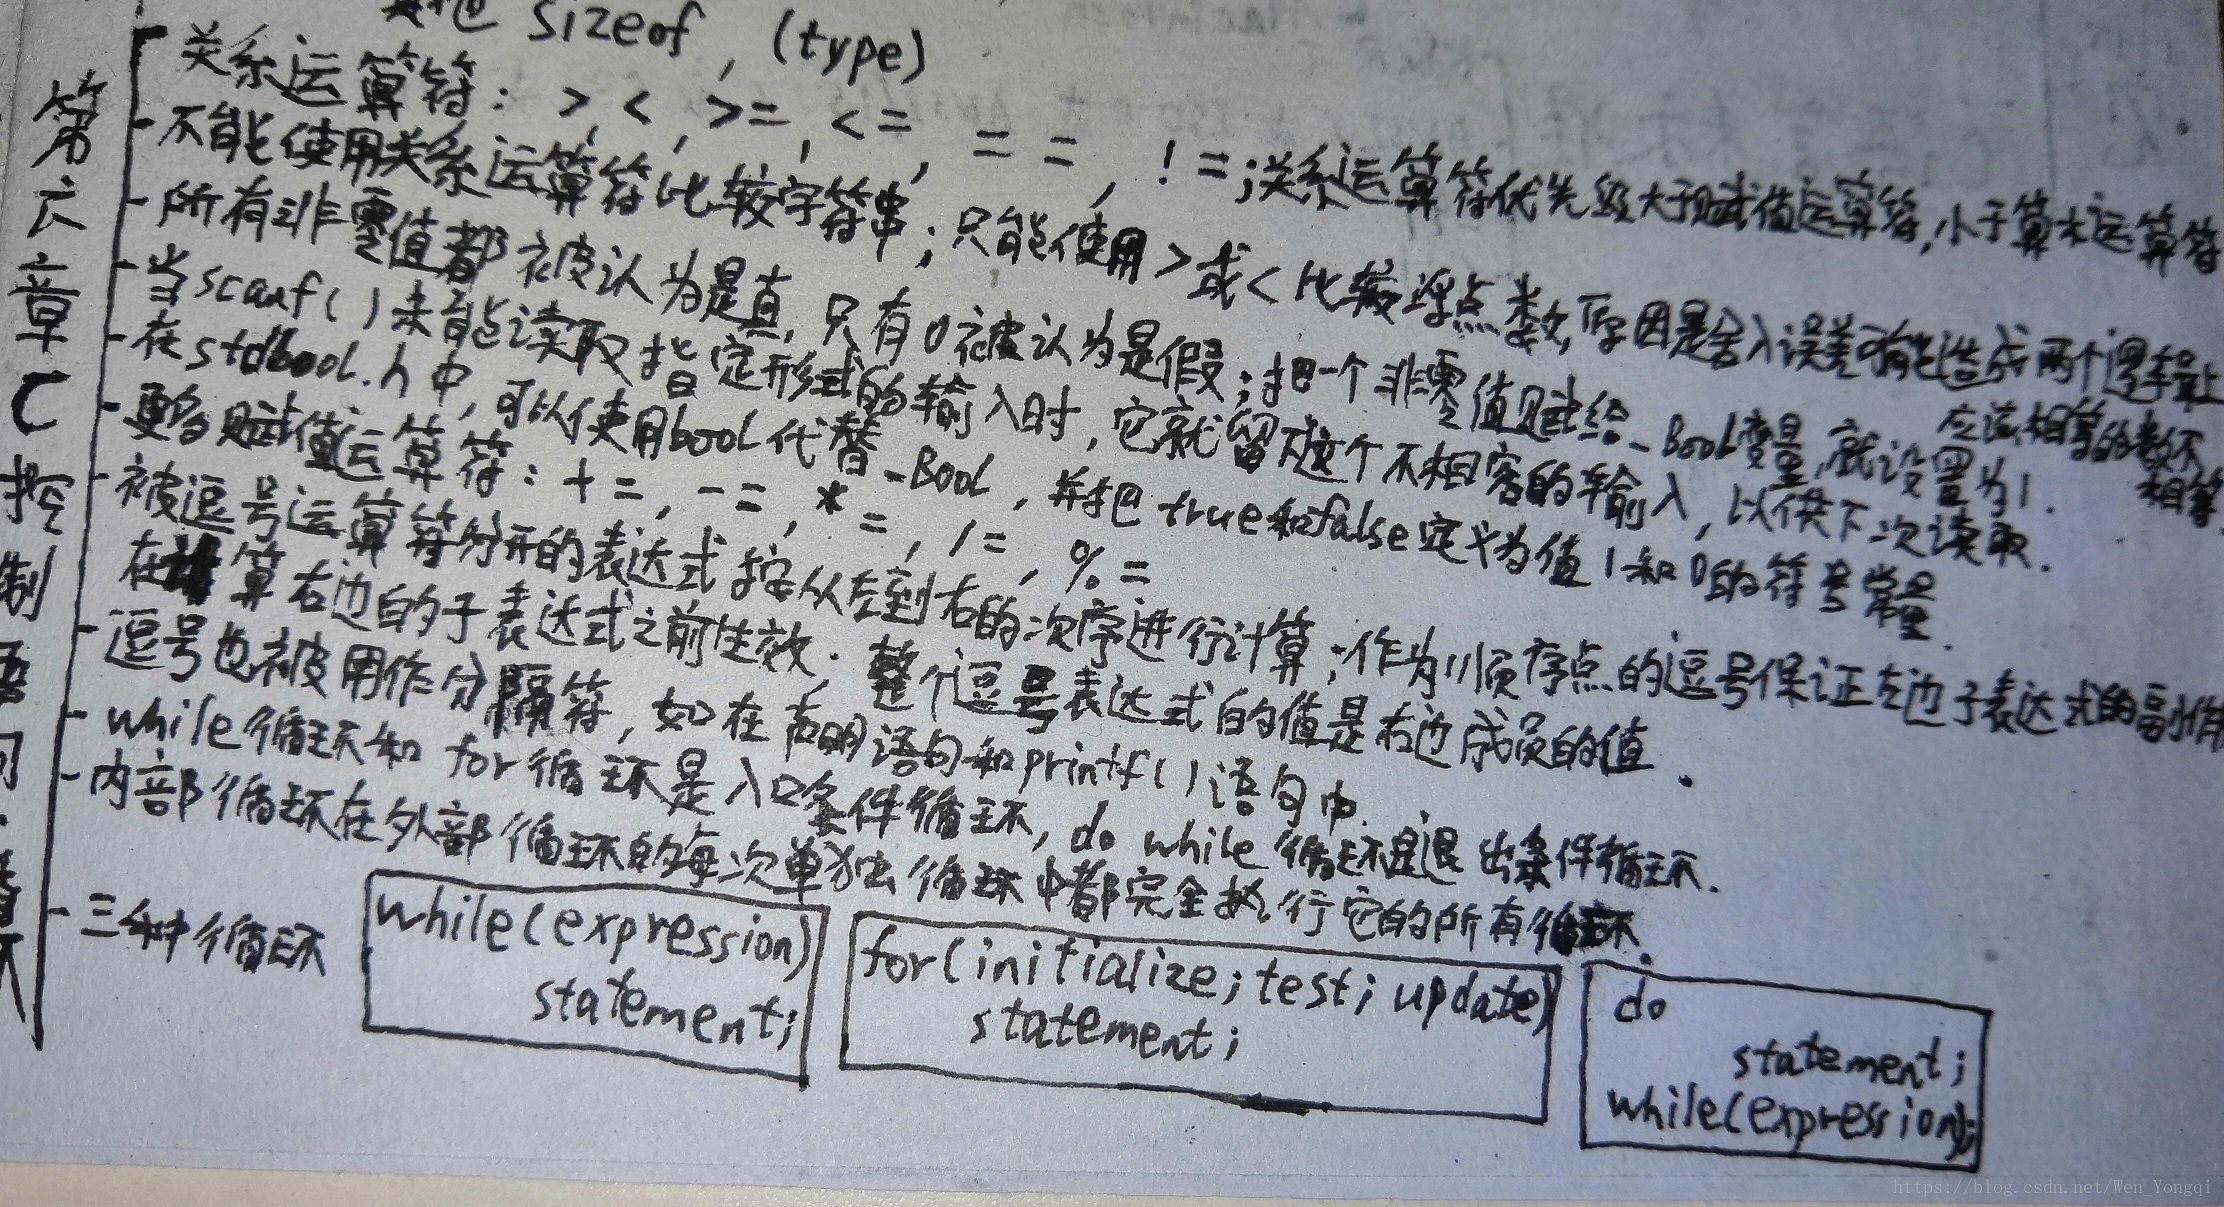 其他 sizeof, (type)
关系运算符: >, <, >=, <=, ==, !=;关系运算符优先级大于赋值运算符,小于算术运算符
不能使用关系运算符比较字符串;只能使用>或<比较浮点数,原因是舍入误差可能造成两个逻辑上
应该相等的数不
相等.
所有非零值都被认为是真,只有0被认为是假;把一个非零值赋给_Bool变量,就设置为1.
当scanf()未能读取指定形式的输入时,它就留下这个不相容的输入,以供下次读取.
在stdbool.h中,可以使用bool代替_Bool,并把true和false定义为值1和0的符号常量.
更多赋值运算符: +=, -=, *=, /=, %=
被逗号运算符分开的表达式按从左到右的次序进行计算;作为顺序点的逗号保证左边子表达式的副作用
在计算右边的子表达式之前生效.整个逗号表达式的值是右边成员的值.
逗号也被用作分隔符,如在声明语句和printf()语句中.
while循环和for循环是入口条件循环,do while循环是退出条件循环.
内部循环在外部循环的每次单独循环中都完全执行它的所有循环.
三种循环
while(expression)
statement;
for(initialize;test;update)
statement;
do
statement;
while(expression);
第六章 C控制语句:循环
https://blog.csdn.net/Wen_Yongqi